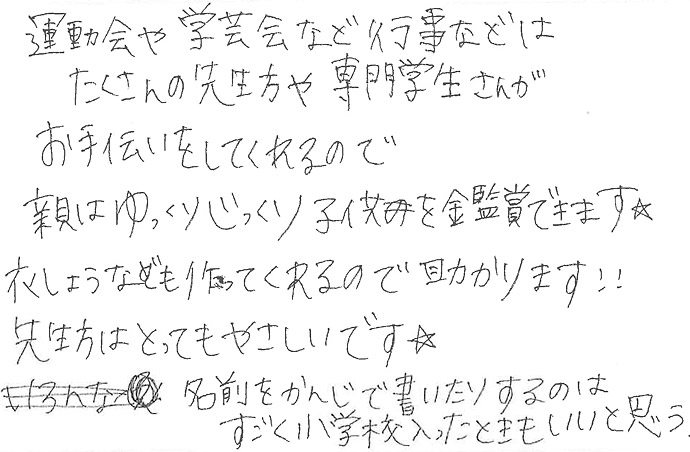 運動会や学芸会など行事などは
たくさんの先生方や専門学生さんが
お手伝いをしてくれるので
親はゆっくりじっくり子供を金監賞できます☆
衣しょうなども作ってくれるので助かります!!
先生方はとってもやさしいです☆
名前をかんじで書いたりするのは
すごく小学校入ったときもいいと思う.